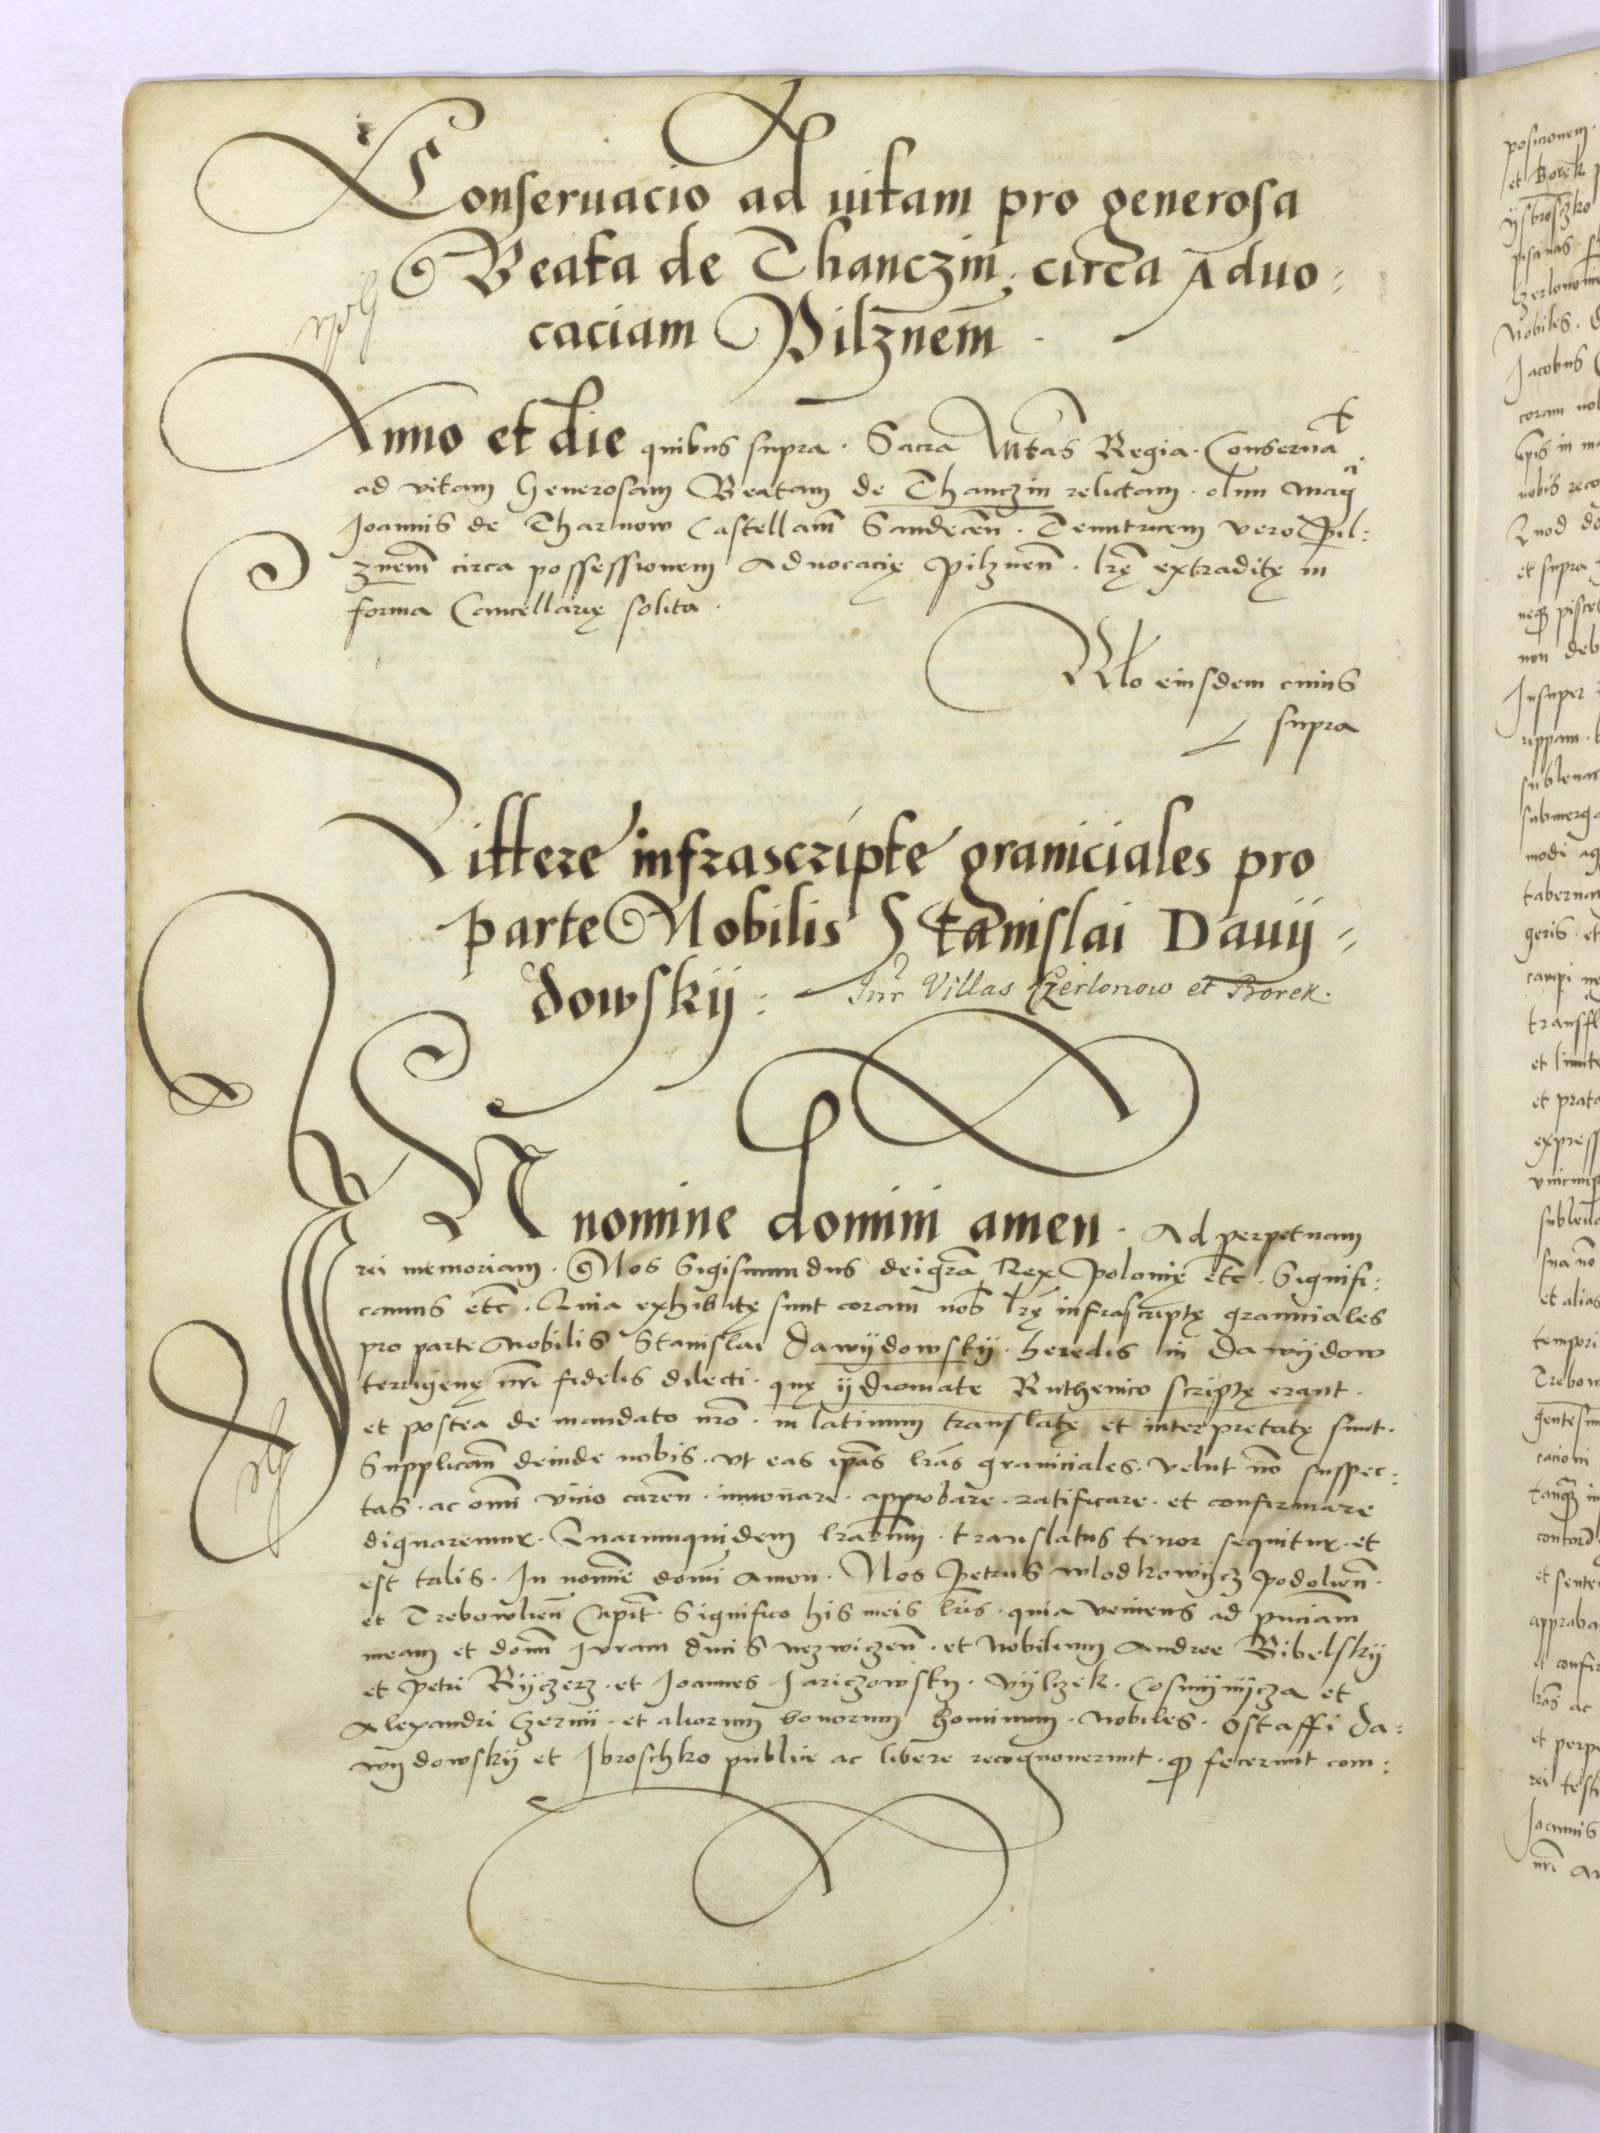 Conseruacio ad uitam pro generosa
Beata de Thanczin: circa Aduo:
caciam Pilznem̄
Anno et die quibus supra. Sacra Mtās Regia. Conserua t
ad vitam Generosam Beatam de Thanczin relictam. olim Mag ci
Joannis de Tharnow Castellani Sandecen̄. Tenutricem vero Pil:
znem̄ circa possessionem Aduocacię Pilznen̄. lrę̄ extraditę in
forma Cancellarię solita.
Rlo eiusdem cuius
supra
Littere infrascripte graniciales pro
parte Nobilis Stanislai Dauij=
dowskij:
Int̄ Villas Czerlonow et Borek.
IN nomine domini amen. Ad perpetuam
rei memoriam. Nos Sigismundus dei gra͞ Rex Polonię etc̄. Signifi:
camus etc̄. Quia exhibitę sunt coram nob̄ lrę̄ infrascriptę graniciales
pro parte Nobilis Stanislai Dawijdowskij. heredis in Dawijdow
terrigenę nr̄i fidelis dilecti. quę ijdiomate Ruthenico scriptę erant.
et postea de mandato nr̄o. in latinum translatę et interpretatę sunt.
Supplican̄ deinde nobis. vt eas ip̄as lrā̄s graniciales. velut nō suspec:
tas. ac omi͞ vicio caren̄. innouare. approbare. ratificare. et confirmare
dignaremur. Quarumquidem lrārum. translatus tenor sequitur. et
est talis. In nomi͞e domi͞ Amen. Nos Petrus wlodkowijcz Podolien̄.
et Trebowlien̄ Capit̄. Significo his meis lr̄is. quia veniens ad pn̄ciam
meam et domi͞ Iwram ducis nezwiczen̄. et Nobilium Andree Bibelskij
et Petri Rijczerz. et Joannes Jariczowskij. Vijlczek. Cosmijnijcza et
Alexandri Czernij. et aliorum bonorum hominum. Nobiles. Ostaffi Da:
wijdowskij et Ibroschko publice ac libere recognouerunt. q̄ fecerunt com: